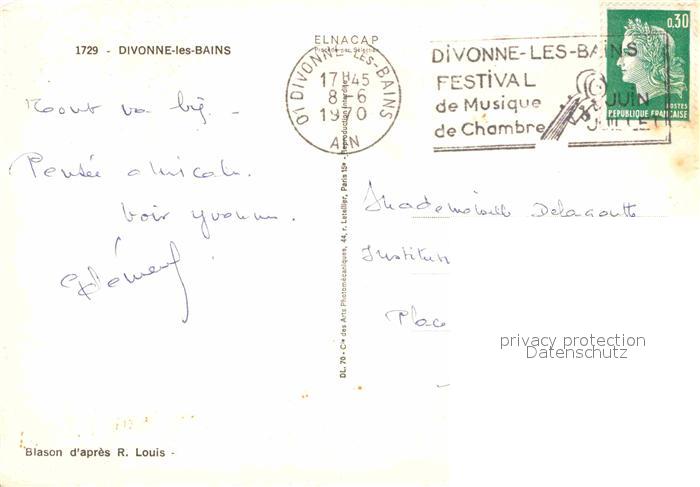 1729 - DIVONNE-les-BAINS
ELNACAP
Procédé par Sélection
01 DIVONNE-LES-BAINS
17H45
8-6
1970
AIN
DIVONNE-LES-BAINS
FESTIVAL
de Musique
de Chambre
JUIN
JUILLET
0,30
POSTES
REPUBLIQUE FRANÇAISE
Tout va
Pensée amicale.
voir Yvonne.
Mademoiselle Delacoutte
Institut
Place
privacy protection
Datenschutz
DL. 70 - Cie des Arts Photomécaniques, 44, r. Letellier, Paris 15e - Reproduction interdite
Blason d'après R. Louis -